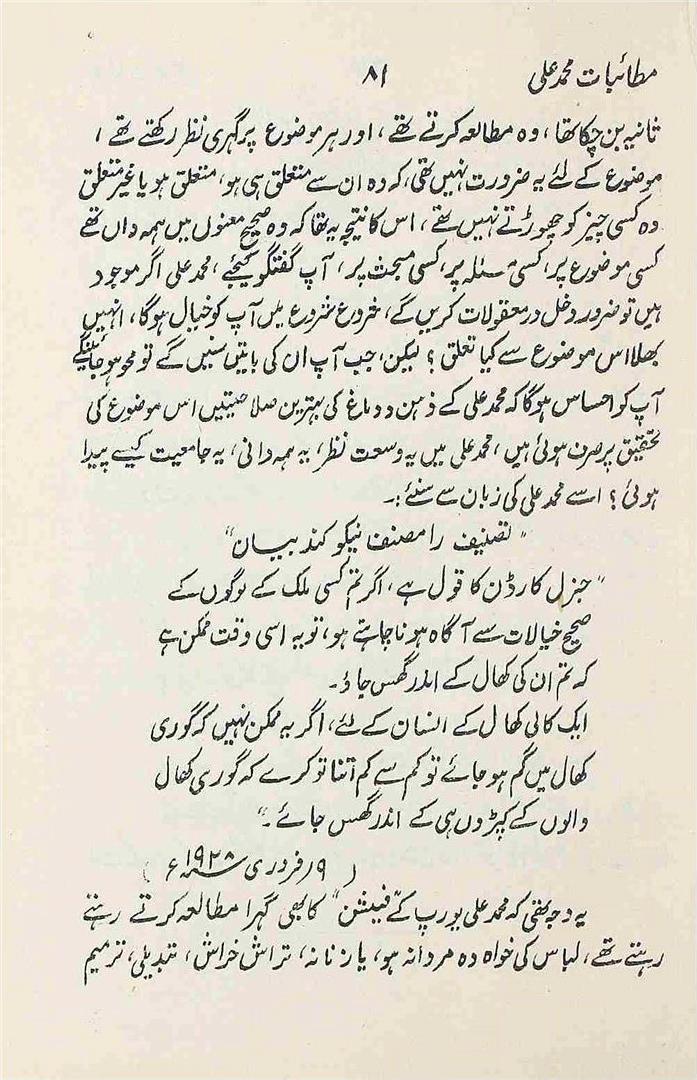 مطائبات محمد علی ۸۱
ثانیہ بن چکا تھا، وہ مطالعہ کرتے تھے، اور ہر موضوع پر گہری نظر رکھتے تھے،
موضوع کے لئے یہ ضرورت نہیں تھی، کہ وہ ان سے متعلق ہی ہو، متعلق ہو یا غیر متعلق
وہ کسی چیز کو چھوڑتے نہیں تھے، اس کا نتیجہ یہ تھا کہ وہ صحیح معنوں میں ہمہ داں تھے
کسی موضوع پر، کسی مسئلہ پر، کسی مبحث پر، آپ گفتگو کیجئے، محمد علی اگر موجود
ہیں تو ضرور دخل در معقولات کریں گے، شروع شروع میں آپ کو خیال ہوگا، انہیں
بھلا اس موضوع سے کیا تعلق؟ لیکن، جب آپ ان کی باتیں سنیں گے تو محو ہو جائینگے
آپ کو احساس ہوگا کہ محمد علی کے ذہن و دماغ کی بہترین صلاحیتیں اس موضوع کی
تحقیق پر صرف ہوئی ہیں، محمد علی میں یہ وسعت نظر، یہ ہمہ دانی، یہ جامعیت کیسے پیدا
ہوئی؟ اسے محمد علی کی زبان سے سنئے:۔
"تصنیف را مصنف نیکو کند بیان"
"جنرل کارڈن کا قول ہے، اگر تم کسی ملک کے لوگوں کے
صحیح خیالات سے آگاہ ہونا چاہتے ہو، تو یہ اسی وقت ممکن ہے
کہ تم ان کی کھال کے اندر گھس جاؤ۔
ایک کالی کھال کے انسان کے لئے، اگر یہ ممکن نہیں کہ گوری
کھال میں گم ہو جائے تو کم سے کم اتنا تو کرے کہ گوری کھال
والوں کے کپڑوں ہی کے اندر گھس جائے۔"
(۹ر فروری ۱۹۲۸ء)
یہ وجہ تھی کہ محمد علی یورپ کے "فیشن" کا بھی گہرا مطالعہ کرتے رہتے
رہتے تھے، لباس کی خواہ وہ مردانہ ہو، یا زنانہ، تراش خراش، تبدیلی، ترمیم